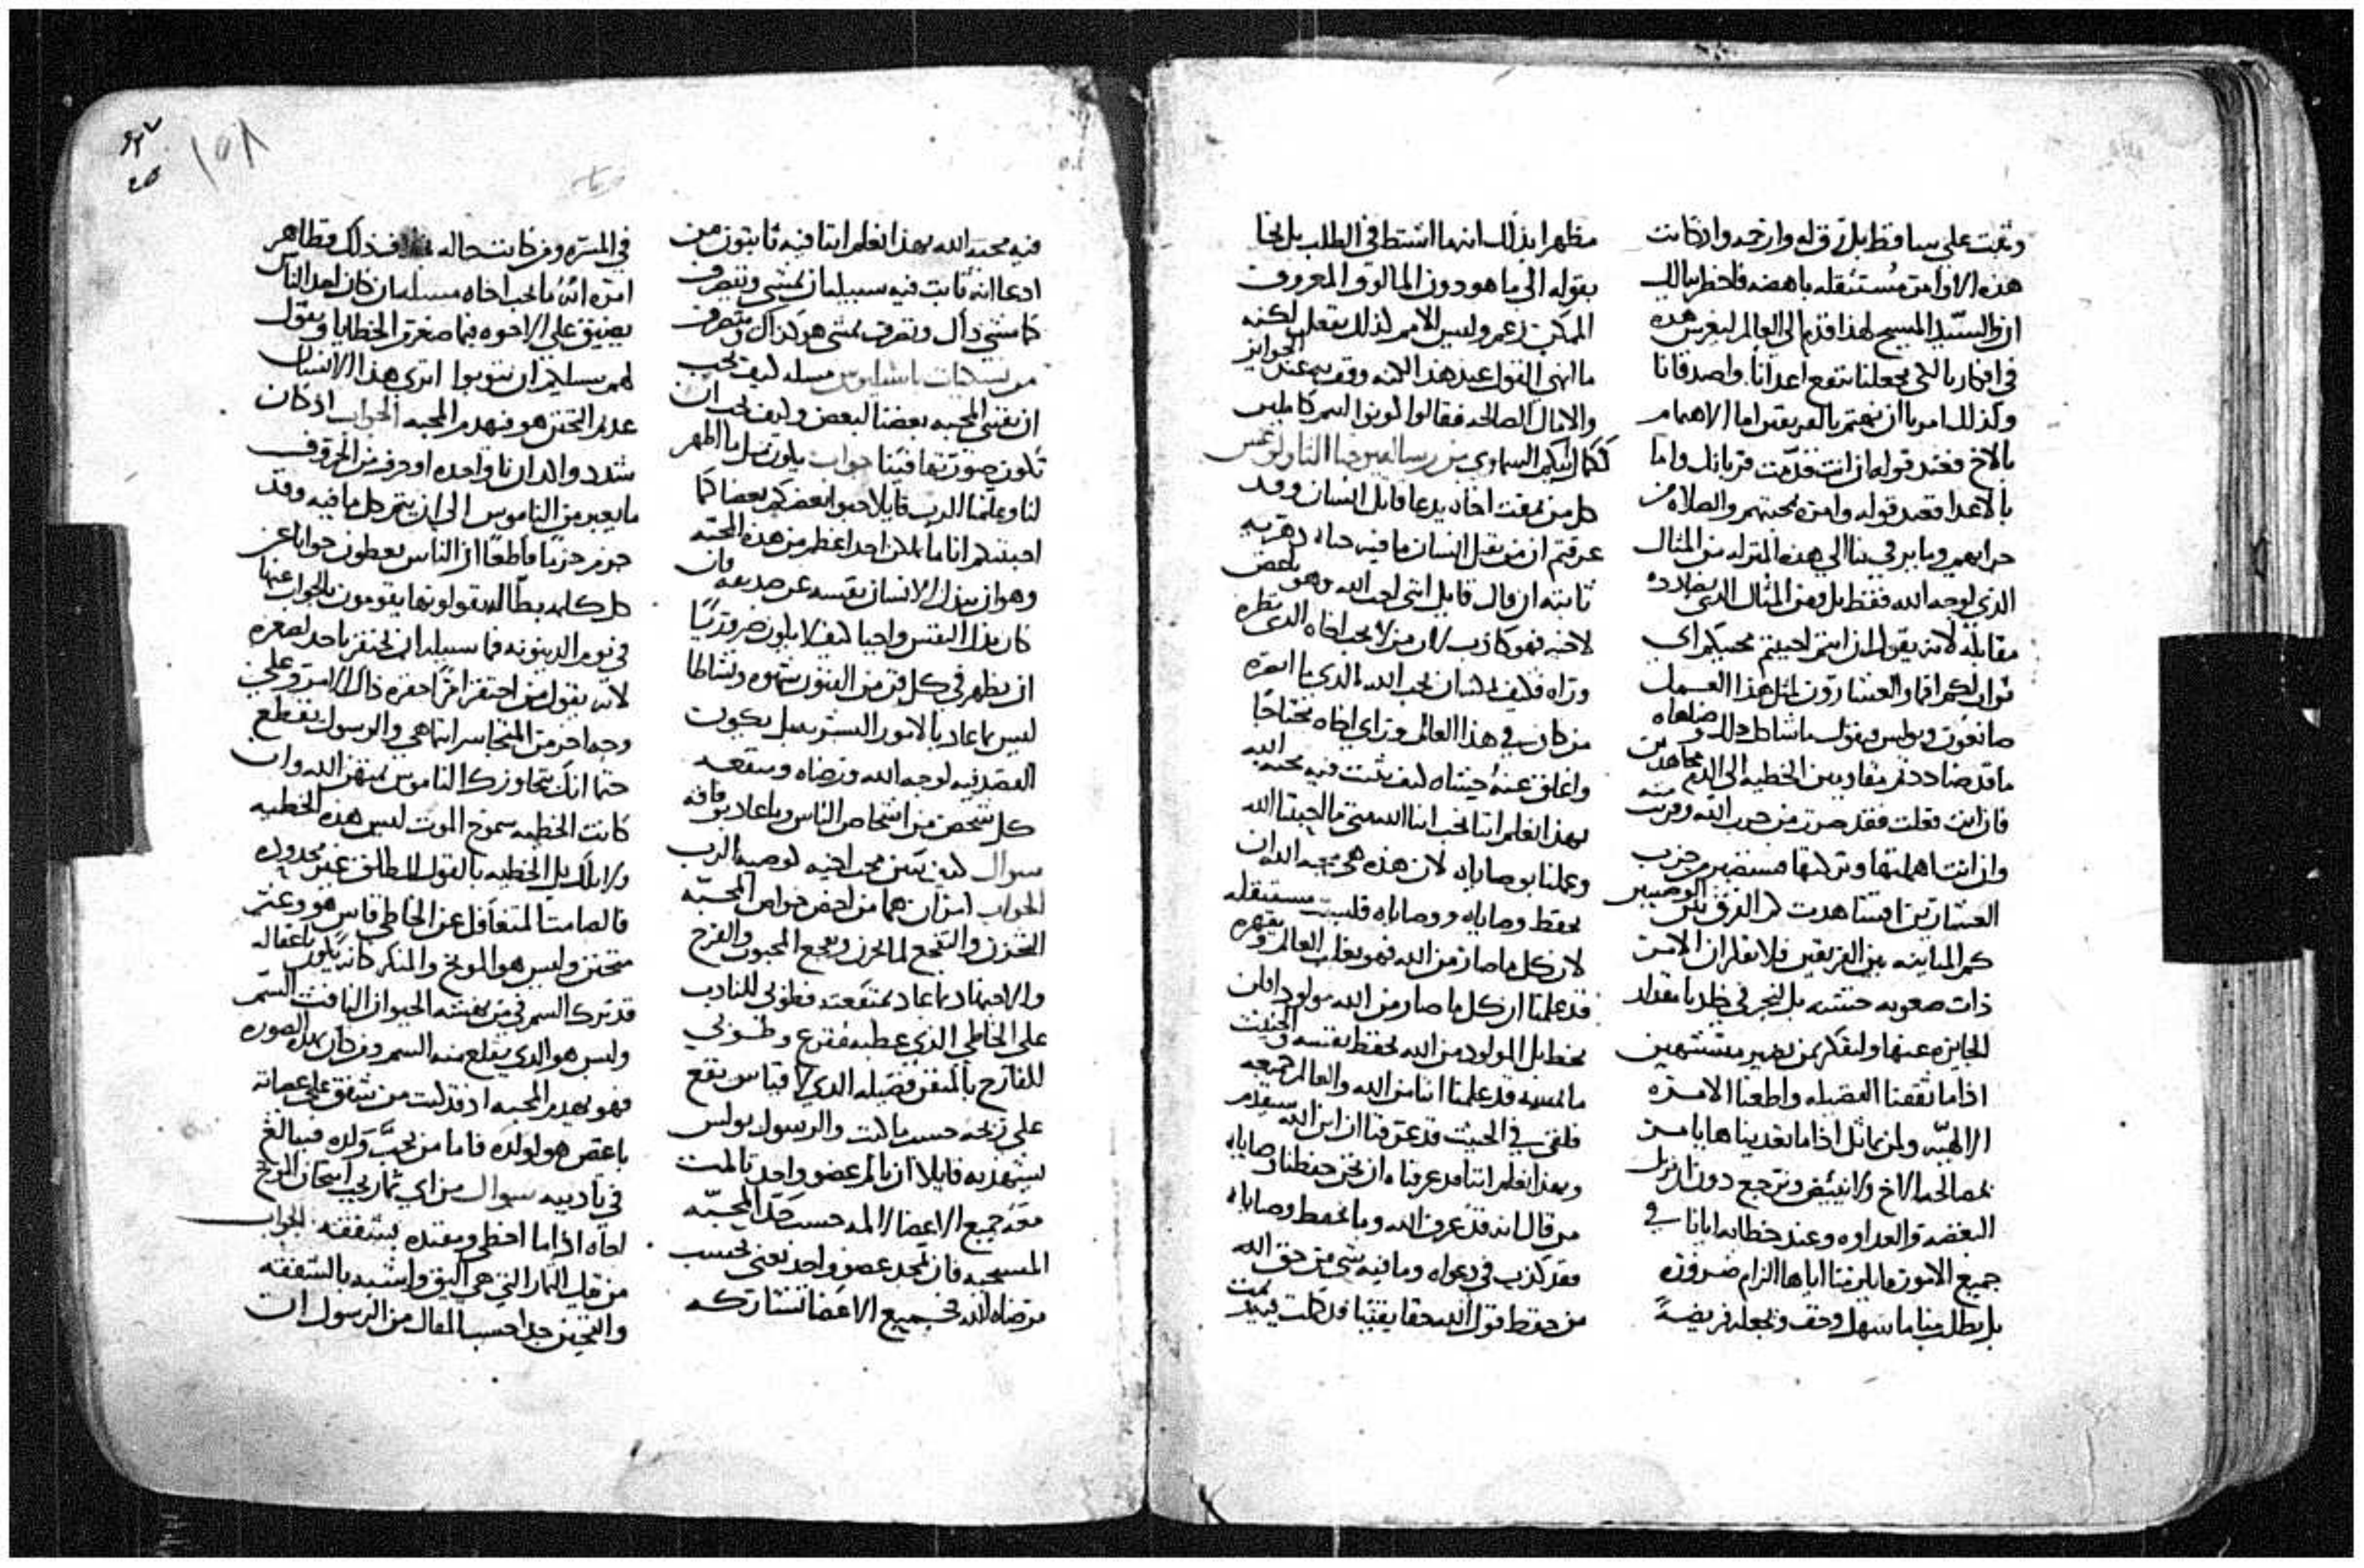 وقعت على بساقط بل زقوله وارحه وان كانت
هذه الاوامر مستثقله باهضه فاخطر ببالك
ان السيد المسيح لهذا قدم الى العالم ليغرس هذه
في افكارنا لكي يجعلنا ننفع اعدانا واصدقانا
ولذلك امرنا ان نهتم بالفريقين اما الاهتمام
بالاخ فعند قوله ان انت قدمت قربانك واما
بالاعدا فعند قوله وامره بمحبتهم والصلاه من
جرايهم وما يرقينا الى هذه المنزله من المثال
الذي لوجه الله فقط بل ومن المثال الذي يضادده
مقابله لانه يقول ان انتم احببتم محبيكم اي
ثواب لكم اما والعشارون مثل هذا العمل
صانعون وبولس يقول ما شاكل ذلك وضاهاه
ما قد صاددتم مقاومين الخطيه الى الدم مجاهدين
فان انت فعلت فقد صرت من حزب الله وقربت منه
وان انت اهملتها وتركتها مستضير من حزب
العشارين افشاهدت كم الفرق بين الوصيتين
كم المباينه بين الفريقين فلا نفكر ان الامر
ذات صعوبه خشنه بل لنجر في خلدنا مقدار
الجايزه عنها ولنفكر بمن نصير متشبهين
اذا ما ثقفنا الفضيله واطعنا الامره
الالهيه ولمن نماثل اذا ما تعديناها يامرنا
بمصالحه الاخ ولا نبيض ونرجع دون ان نزيل
البغضه والعداوه وعند خطابه ايانا في
جميع الامور ما يلزمنا اياها الزام ضروره
بل يطلب منا ما سهل وخف ونجعله فريضة
مظهرا بذلك انه ما اشتط في الطلب بل نحا
بقوله الى ما هو دون المالوف والمعروف
الممكن زعم وليس الامم كذلك يفعل لكنه
ما انهى القول عند هذا الكنه ووقف بهم عند الجوايز
والامال الصالحه فقالوا كونوا انتم كاملين
ككمال ابيكم السماوي من رساله يوحنا الثاولوغس
كل من يمقت اخاه يدعا قاتل انسان وقد
عرفتم ان من يقتل انسان ما فيه حياه دهريه
ثابته ان قال قايل انني احب الله وهو باغض
لاخيه فهو كاذب لان من لا يحب اخاه الذي نظره
وراه فكيف يمكنه ان يحب الله الذي ما ابصره
من كان في هذا العالم وراى اخاه محتاجا
واغلق عنه حيثناه كيف تثبت فيه محبه الله
بهذا نعلم اننا نحب ابنا الله متى ما احببنا الله
وعملنا بوصاياه لان هذه هي محبه الله ان
نحفظ وصاياه ووصاياه فليست مستثقله
لان كل ما صار من الله فهو يغلب العالم ويقهره
قد علمنا ان كل ما صار من الله مولود ما كان
يخطي بل المولود من الله يحفظ نفسه والخبيث
ما يمسه قد علمنا اننا من الله والعالم جميعه
فملقى في الخبيث قد عرفنا ان ابن الله سيقدم
وبهذا نعلم اننا قد عرفناه ان نحن حفظنا وصاياه
من قال انه قد عرف الله وما يحفظ وصاياه
فقد كذب في دعواه وما فيه شي من حق الله
من حفظ قول الله حقا يقينا قد كملت فيه تمت
فيه محبه الله بهذا نعلم اننا فيه ثابتون من
ادعا انه ثابت فيه سبيله ان يمشي ويتصرف
كما مشى ذاك وتصرف يمشي هو كذاك ويتصرف
من نسكيات باسيليوس مسله كيف يجب
ان نقتني المحبه بعضنا لبعض وكيف يجب ان
تكون صورتها فينا جواب يكون مثلما اظهر
لنا وعلمنا الرب قايلا حبوا بعضكم بعضا كما
احببتكم انا ما يملك احد اعظم من هذه المحبه
وهو ان يبذل الانسان نفسه عن صديقه فان
كان بذل النفس واجبا كيف لا يكون ضروريا
ان يظهر في كل فن من الفنون شهوه ونشاطا
ليس بما عاد بالامور البشريه بل يكون
القصد فيه لوجه الله ورضاه ومنفعه
كل شخص من اشخاص الناس وما عاد بوفاقه
سوال كيف يتبين محب اخيه لوصيه الرب
الجواب امران هما من اخص خواص المحبه
التحزن والتفجع لما يحزن ويفجع المحبوب والفرح
والاجتهاد بما عاد بمنفعته فطوبى للنادب
على الخاطي الذي عطبه مفزع وطوبى
للفارح بالمتقن فضيله الذي لا قياس نفع
على ربحه حسب ما كتب والرسول بولس
يشهد به قايلا ان يالم عضو واحد تالمت
معه جميع الاعضا الامه حسب حد المحبه
المسيحيه فان تمجد عضو واحد يعني بحسب
مرضاه الله فجميع الاعضا تشاركه
في المسره ومن كانت حاله بخلاف ذلك فظاهر
امره انه ما يحب اخاه مسله ان كان احد الناس
يضيق على الاخوه فيما صغر من الخطايا ويقول
لهم سبيلكم ان تتوبوا اترى هذا الانسان
عديم التحنن هو فيهدم المحبه الجواب اذ كان
شدد واكد ان ناوا واحده او حرف من الحروف
ما يعبر من الناموس الى ان يتم كل ما فيه وقد
جزم جزما قاطعا ان الناس يعطون جوابا عن
كل كلمه بطاله يقولونها يقومون بالجواب عنها
في يوم الدينونه فما سبيلنا ان نحتقر باحد لصغره
لانه يقول من احتقر امرا احقره ذاك الامر وعلى
وجه اخر من المتجاسر انتاهي والرسول يقطع
حتما انك بتجاوزك الناموس تمتهن الله وان
كانت الخطيه سموخ الموت ليس هذه الخطيه
ولا تلك بل الخطيه بالقول المطلق غير محدوده
فالصامت المتغافل عن الخاطي قاس هو وغير
متحنن وليس هو الموبخ والمنكر كانه يكون باغفاله
قد ترك السم في من نهشه الحيوان النافث السم
وليس هو الذي يقلع منه السم ومن كان بهذه الصوره
فهو يهدم المحبه اذ قد كتب من شفق على عصاته
باغض هو لولده فاما من يحب ولده فيبالغ
في تاديبه سوال من اي ثمار يجب امتحان الموبخ
اخاه اذا ما اخطى ومفنده بشفقته الجواب
من قبل الثمار التي هي اليق واشبه بالشفقه
والتحنن جدا حسب المقال من الرسول ان